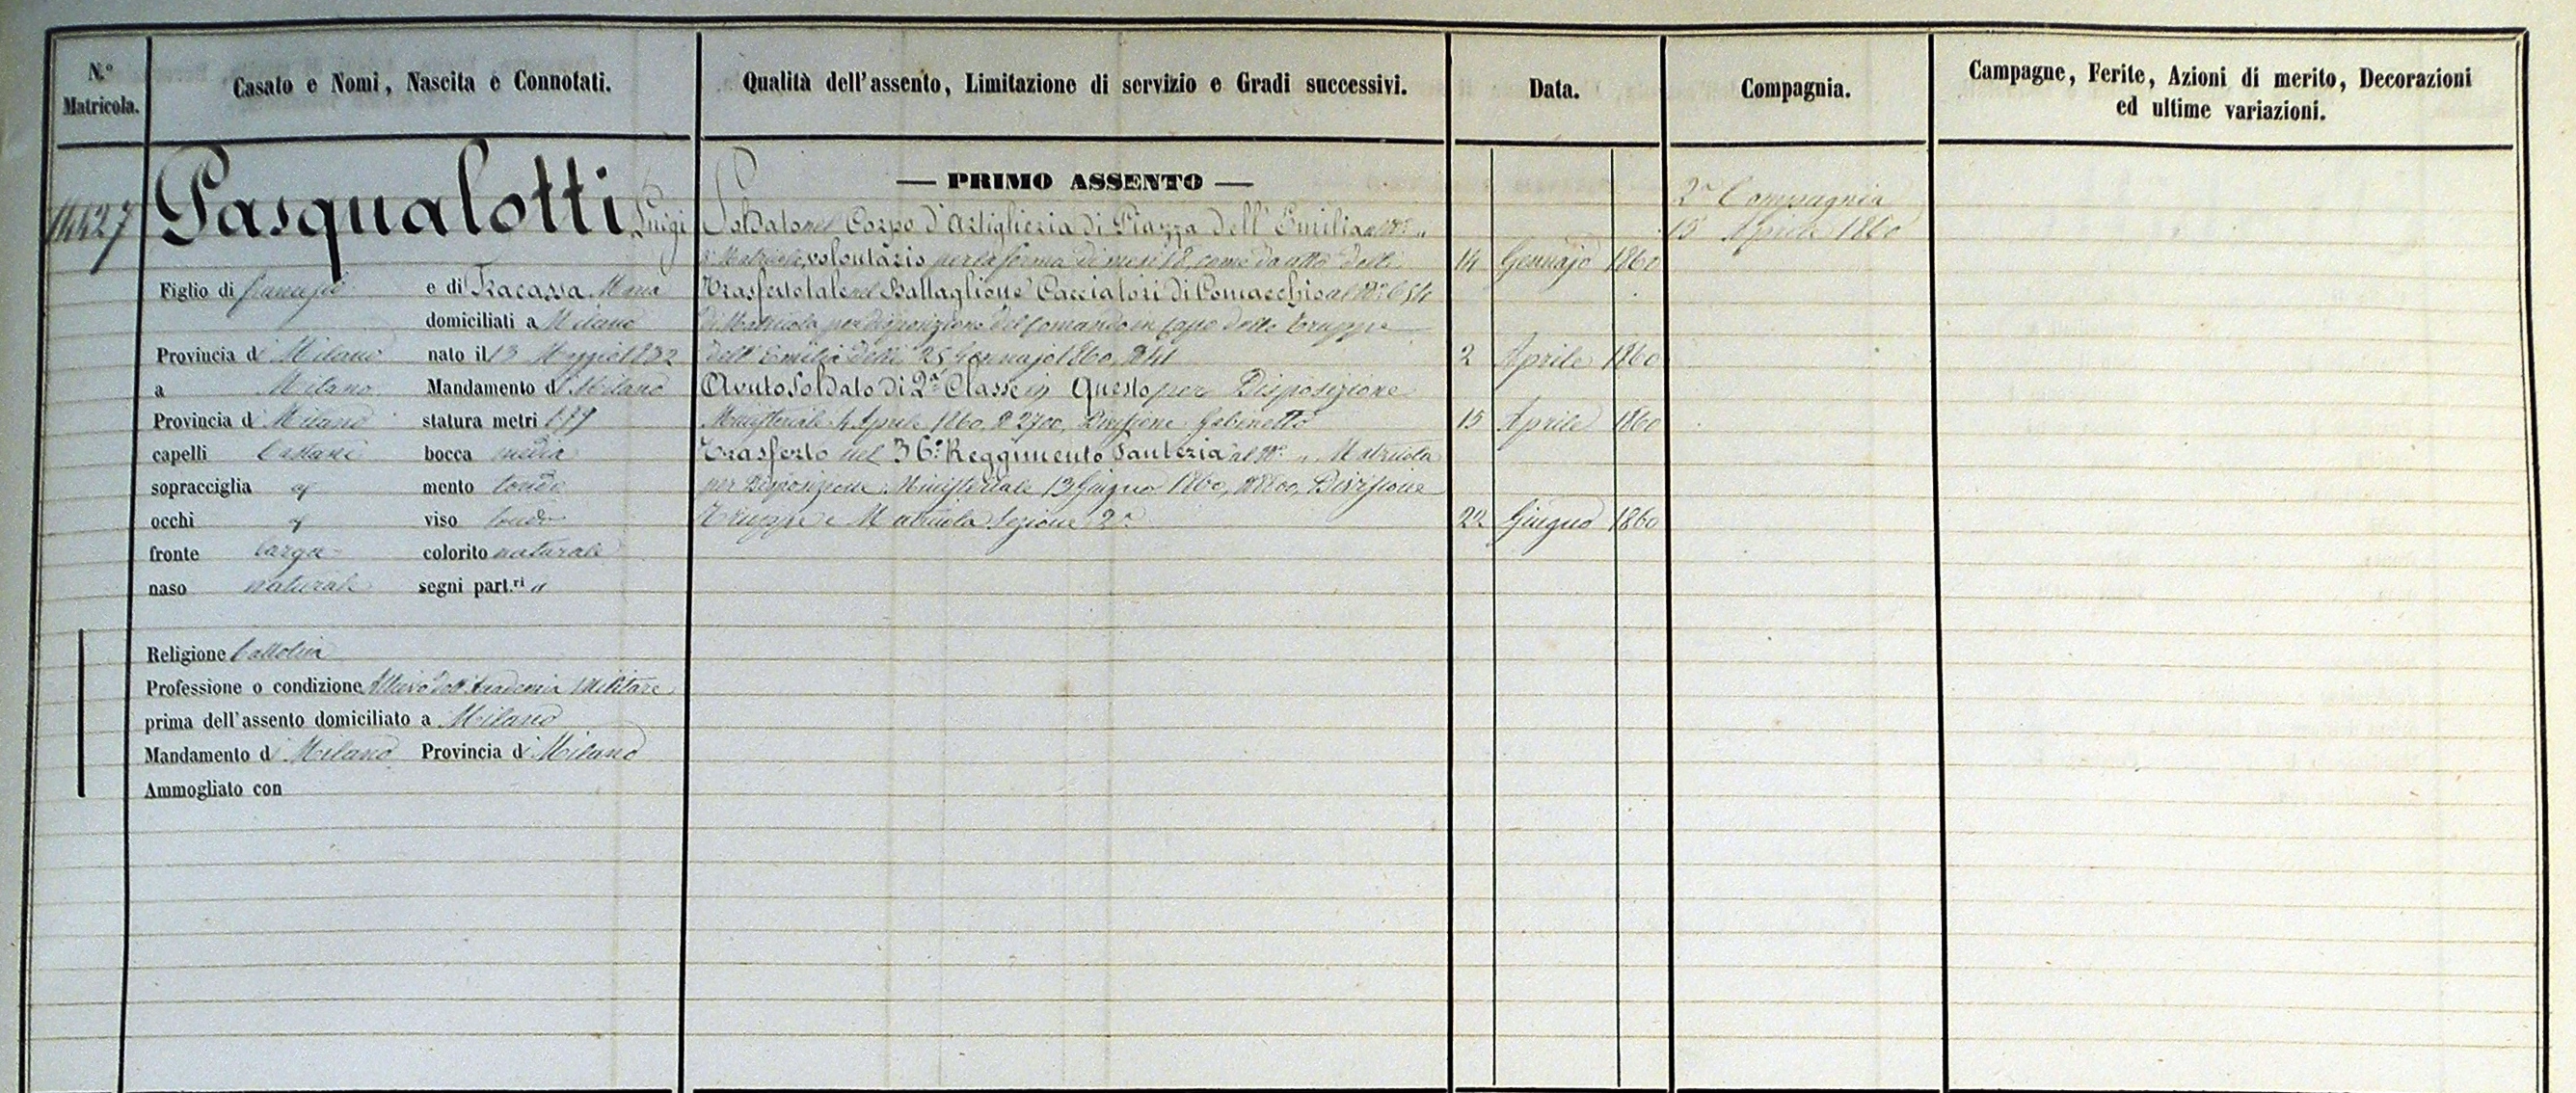 N.º Matricola.
Casato e Nomi, Nascita e Connotati.
Qualità dell'assento, Limitazione di servizio e Gradi successivi.
Data.
Compagnia.
Campagne, Ferite, Azioni di merito, Decorazioni
ed ultime variazioni.
Pasqualotti Luigi
Figlio di e di Fracassa Maria
domiciliati a Milano
Provincia di Milano nato il 13 Maggio 1832
a Milano Mandamento di Milano
Provincia di Milano statura metri 1,79
capelli Castani bocca media
sopracciglia id mento tondo
occhi id viso tondo
fronte larga colorito naturale
naso naturale segni part.ri "
Religione Cattolica
Professione o condizione Allievo dell'Accademia Militare
prima dell'assento domiciliato a Milano
Mandamento di Milano Provincia di Milano
Ammogliato con
— PRIMO ASSENTO —
Soldato nel Corpo d'Artiglieria di Piazza dell'Emilia al Nº "
di Matricola, volontario per la ferma di mesi 18, come da atto delli 14 Gennajo 1860
Trasferto tale nel Battaglione Cacciatori di Comacchio al Nº
di Matricola per disposizione del Comando in Capo delle Truppe
dell'Emilia delli 25 Gennajo 1860, Nº 41 2 Aprile 1860
Avuto Soldato di 2ª Classe in Questo per Disposizione
Ministeriale 4 Aprile 1860, Nº 2700, Divisione Gabinetto 15 Aprile 1860
Trasferto nel 36º Reggimento Fanteria al Nº " Matricola
per Disposizione Ministeriale 13 Giugno 1860, Divisione
Truppe e Matricola Sezione 2ª 22 Giugno 1860
2ª Compagnia
15 Aprile 1860